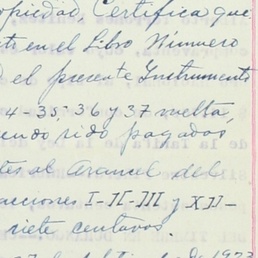 opiedad, Certifica que
te en el Libro Número
el presente Instrumento
4-35-36 y 37 vuelta,
endo sido pagados
tes al Arancel del
acciones I-II-III y XII-
siete centavos.